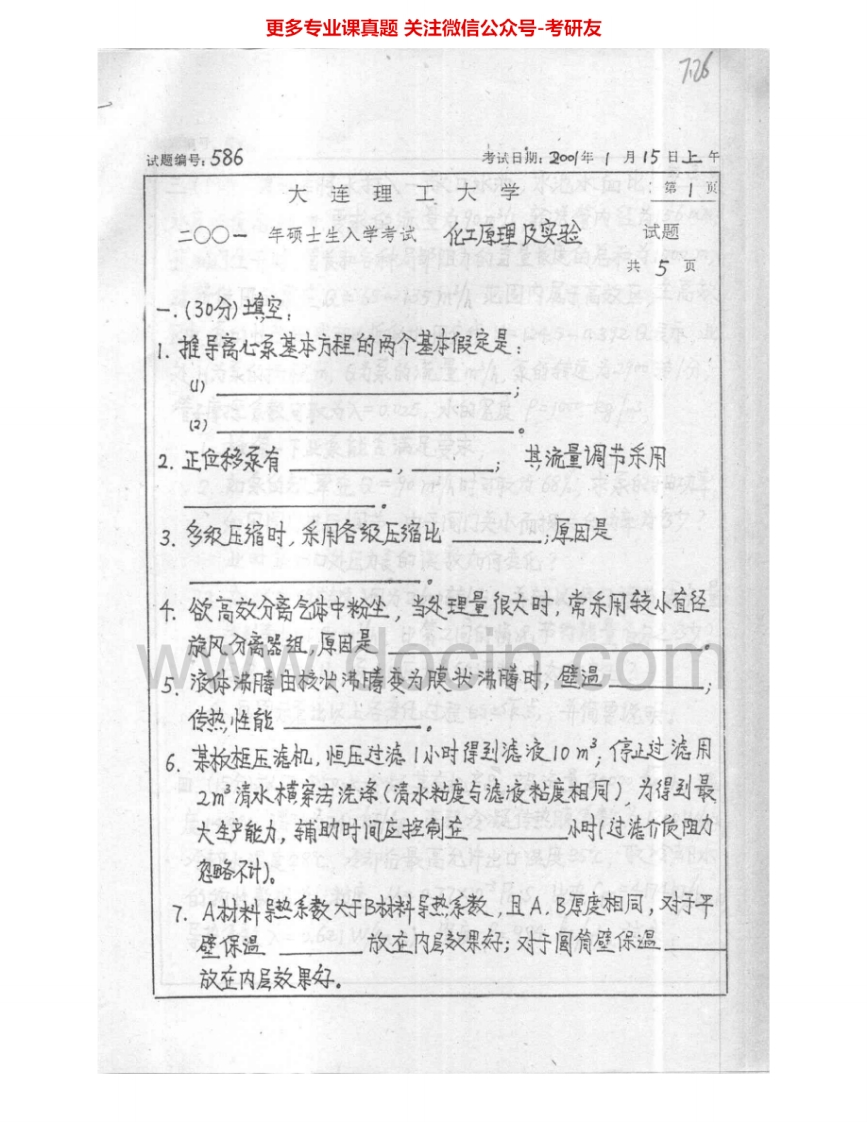 更多专业课真题 关注微信公众号-考研友
7.26
试题编号:586 考试日期:2001年 1 月 15 日上午
大连理工大学 第 1 页
二〇〇一 年硕士生入学考试 化工原理及实验 试题
共 5 页
一.(30分)填空:
1. 推导离心泵基本方程的两个基本假定是:
(1) ;
(2) 。
2. 正位移泵有 , ; 其流量调节采用
。
3. 多级压缩时,采用各级压缩比 ;原因是
。
4. 欲高效分离气体中粉尘,当处理量很大时,常采用较小直径
旋风分离器组,原因是 。
5. 液体沸腾由核状沸腾变为膜状沸腾时,壁温 ;
传热性能 。
6. 某板框压滤机,恒压过滤1小时得到滤液10 m³,停止过滤用
2m³清水横穿法洗涤(清水粘度与滤液粘度相同),为得到最
大生产能力,辅助时间应控制在 小时(过滤介质阻力
忽略不计)。
7. A材料导热系数大于B材料导热系数,且A.B厚度相同,对于平
壁保温 放在内层效果好;对于圆筒壁保温
放在内层效果好。
www.docin.com